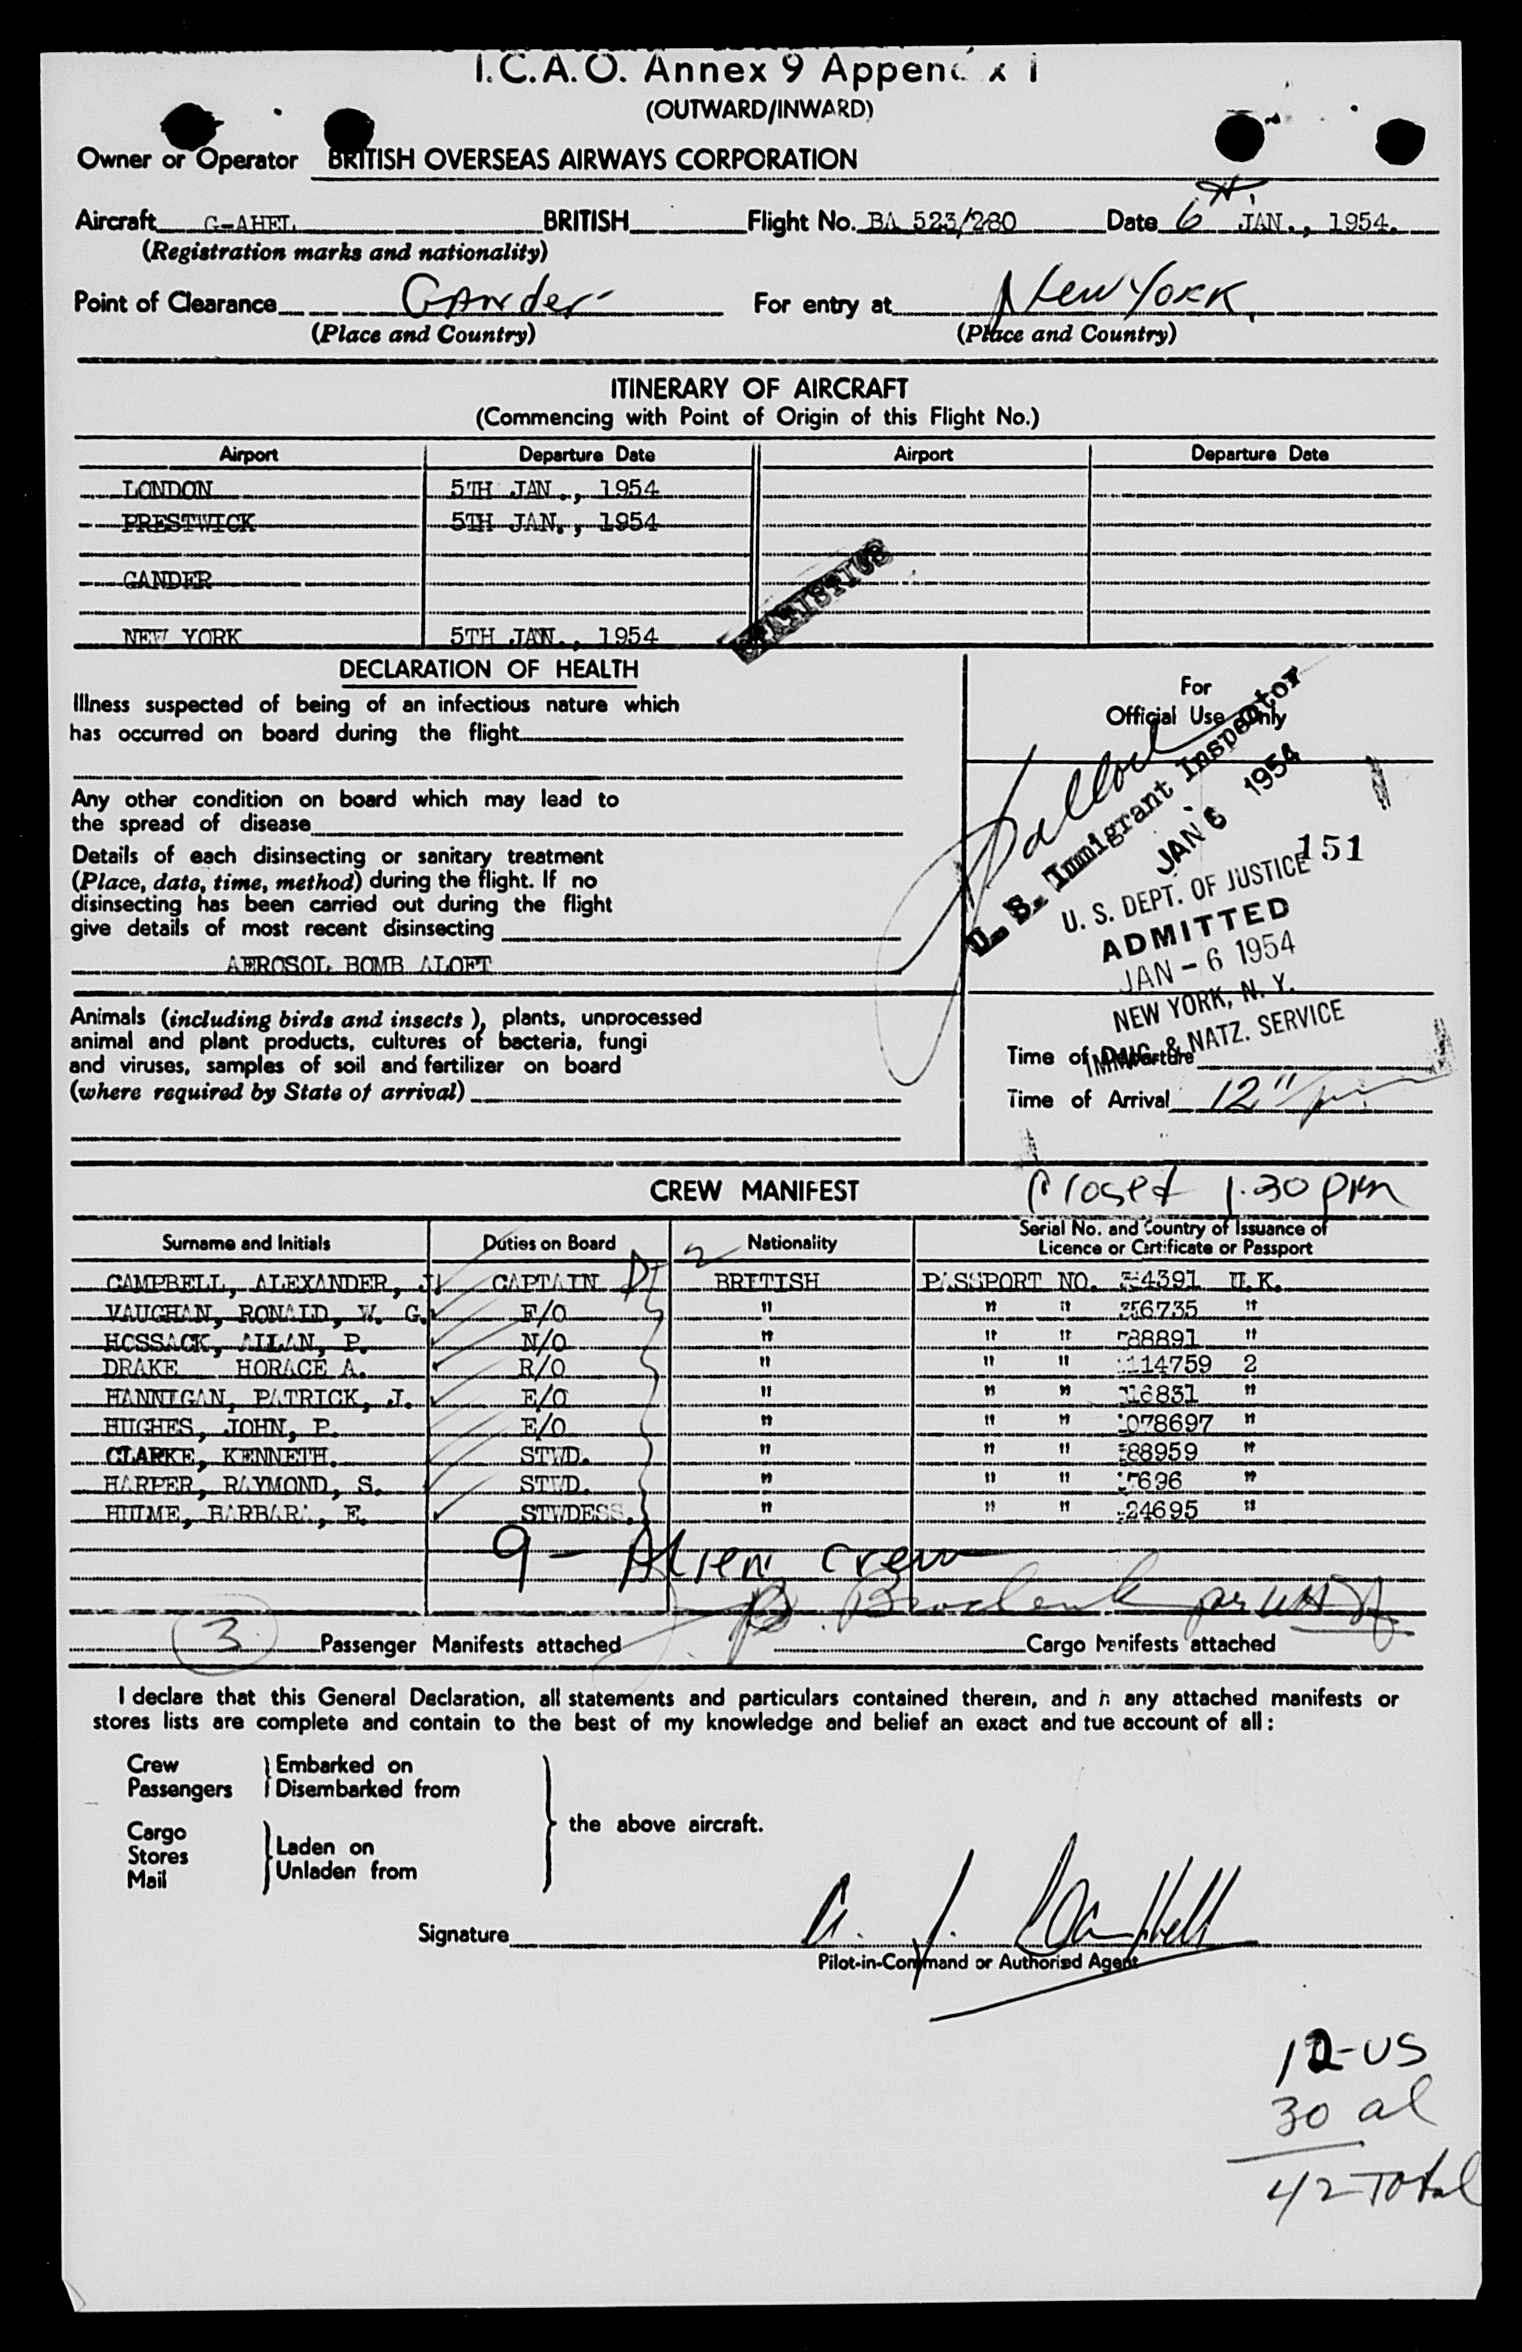 I.C.A.O. Annex 9 Appendix 1
(OUTWARD/INWARD)
Owner or Operator BRITISH OVERSEAS AIRWAYS CORPORATION
Aircraft G-AHEL BRITISH Flight No. BA 523/280 Date 6th JAN., 1954.
(Registration marks and nationality)
Point of Clearance Gander For entry at New York
(Place and Country) (Place and Country)
ITINERARY OF AIRCRAFT
(Commencing with Point of Origin of this Flight No.)
Airport Departure Date Airport Departure Date
LONDON 5TH JAN., 1954
PRESTWICK 5TH JAN., 1954
GANDER
NEW YORK 5TH JAN., 1954
DECLARATION OF HEALTH
Illness suspected of being of an infectious nature which
has occurred on board during the flight
Any other condition on board which may lead to
the spread of disease
Details of each disinsecting or sanitary treatment
(Place, date, time, method) during the flight. If no
disinsecting has been carried out during the flight
give details of most recent disinsecting
AEROSOL BOMB ALOFT
Animals (including birds and insects), plants, unprocessed
animal and plant products, cultures of bacteria, fungi
and viruses, samples of soil and fertilizer on board
(where required by State of arrival)
For
Official Use Only
U. S. Immigrant Inspector
JAN 6 1954
151
U. S. DEPT. OF JUSTICE
ADMITTED
JAN - 6 1954
NEW YORK, N. Y.
IMMIG. & NATZ. SERVICE
Time of Departure
Time of Arrival 12"
Closed 1.30 pm
CREW MANIFEST
Surname and Initials Duties on Board Nationality Serial No. and Country of Issuance of
Licence or Certificate or Passport
CAMPBELL, ALEXANDER, J. CAPTAIN D 2 BRITISH PASSPORT NO. 4391 U.K.
VAUGHAN, RONALD, W. G. F/O " " " 56735 "
HOSSACK, ALLAN, P. N/O " " " 88891 "
DRAKE HORACE A. R/O " " " 114759 2
HANNIGAN, PATRICK, J. E/O " " " 16831 "
HUGHES, JOHN, P. E/O " " " 078697 "
CLARKE, KENNETH. STWD. " " " 88959 "
HARPER, RAYMOND, S. STWD. " " " 7696 "
HULME, BARBARA, E. STWDESS. " " " 24695 "
9 - Alien crew
3 Passenger Manifests attached Cargo Manifests attached
I declare that this General Declaration, all statements and particulars contained therein, and in any attached manifests or
stores lists are complete and contain to the best of my knowledge and belief an exact and tue account of all:
Crew Embarked on
Passengers Disembarked from
the above aircraft.
Cargo
Stores Laden on
Mail Unladen from
Signature A. J. Campbell
Pilot-in-Command or Authorised Agent
12-US
30 al
42 Total